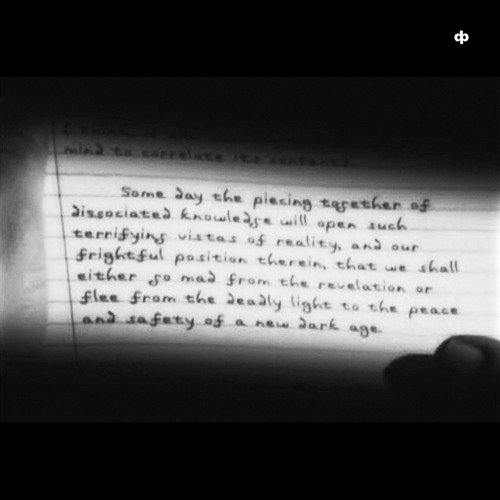 ф
mind to correlate its contents
Some day the piecing together of
dissociated knowledge will open such
terrifying vistas of reality, and our
frightful position therein, that we shall
either go mad from the revelation or
flee from the deadly light to the peace
and safety of a new dark age